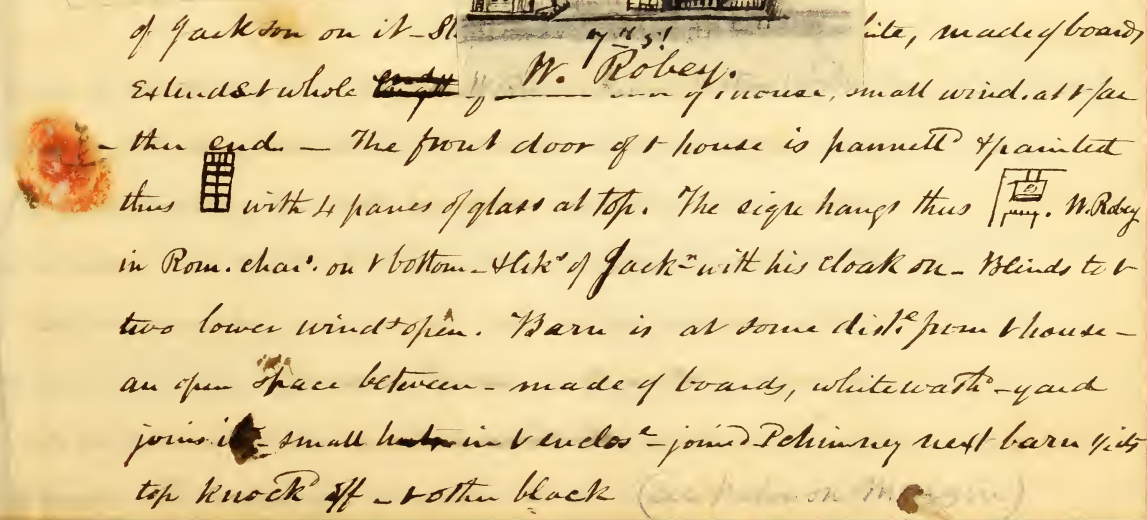 of Jackson on it - St ite, made of boards
7 m s!
W. Robey.
Extends t whole of house, small wind. at t far
- ther end. - The front door of t house is pannell'd & painted
thus with 4 panes of glass at top. The sign hangs thus . W. Robey
in Rom. char'. on t bottom - & lik' of Jack'n with his cloak on - Blinds to t
two lower wind's open. Barn is at some dist'e from t house -
an open space between - made of boards, whitewash'd - yard
joins it - small in t enclos'e - joined chimney next barn its
top knock'd off - t other black (see on Margin)